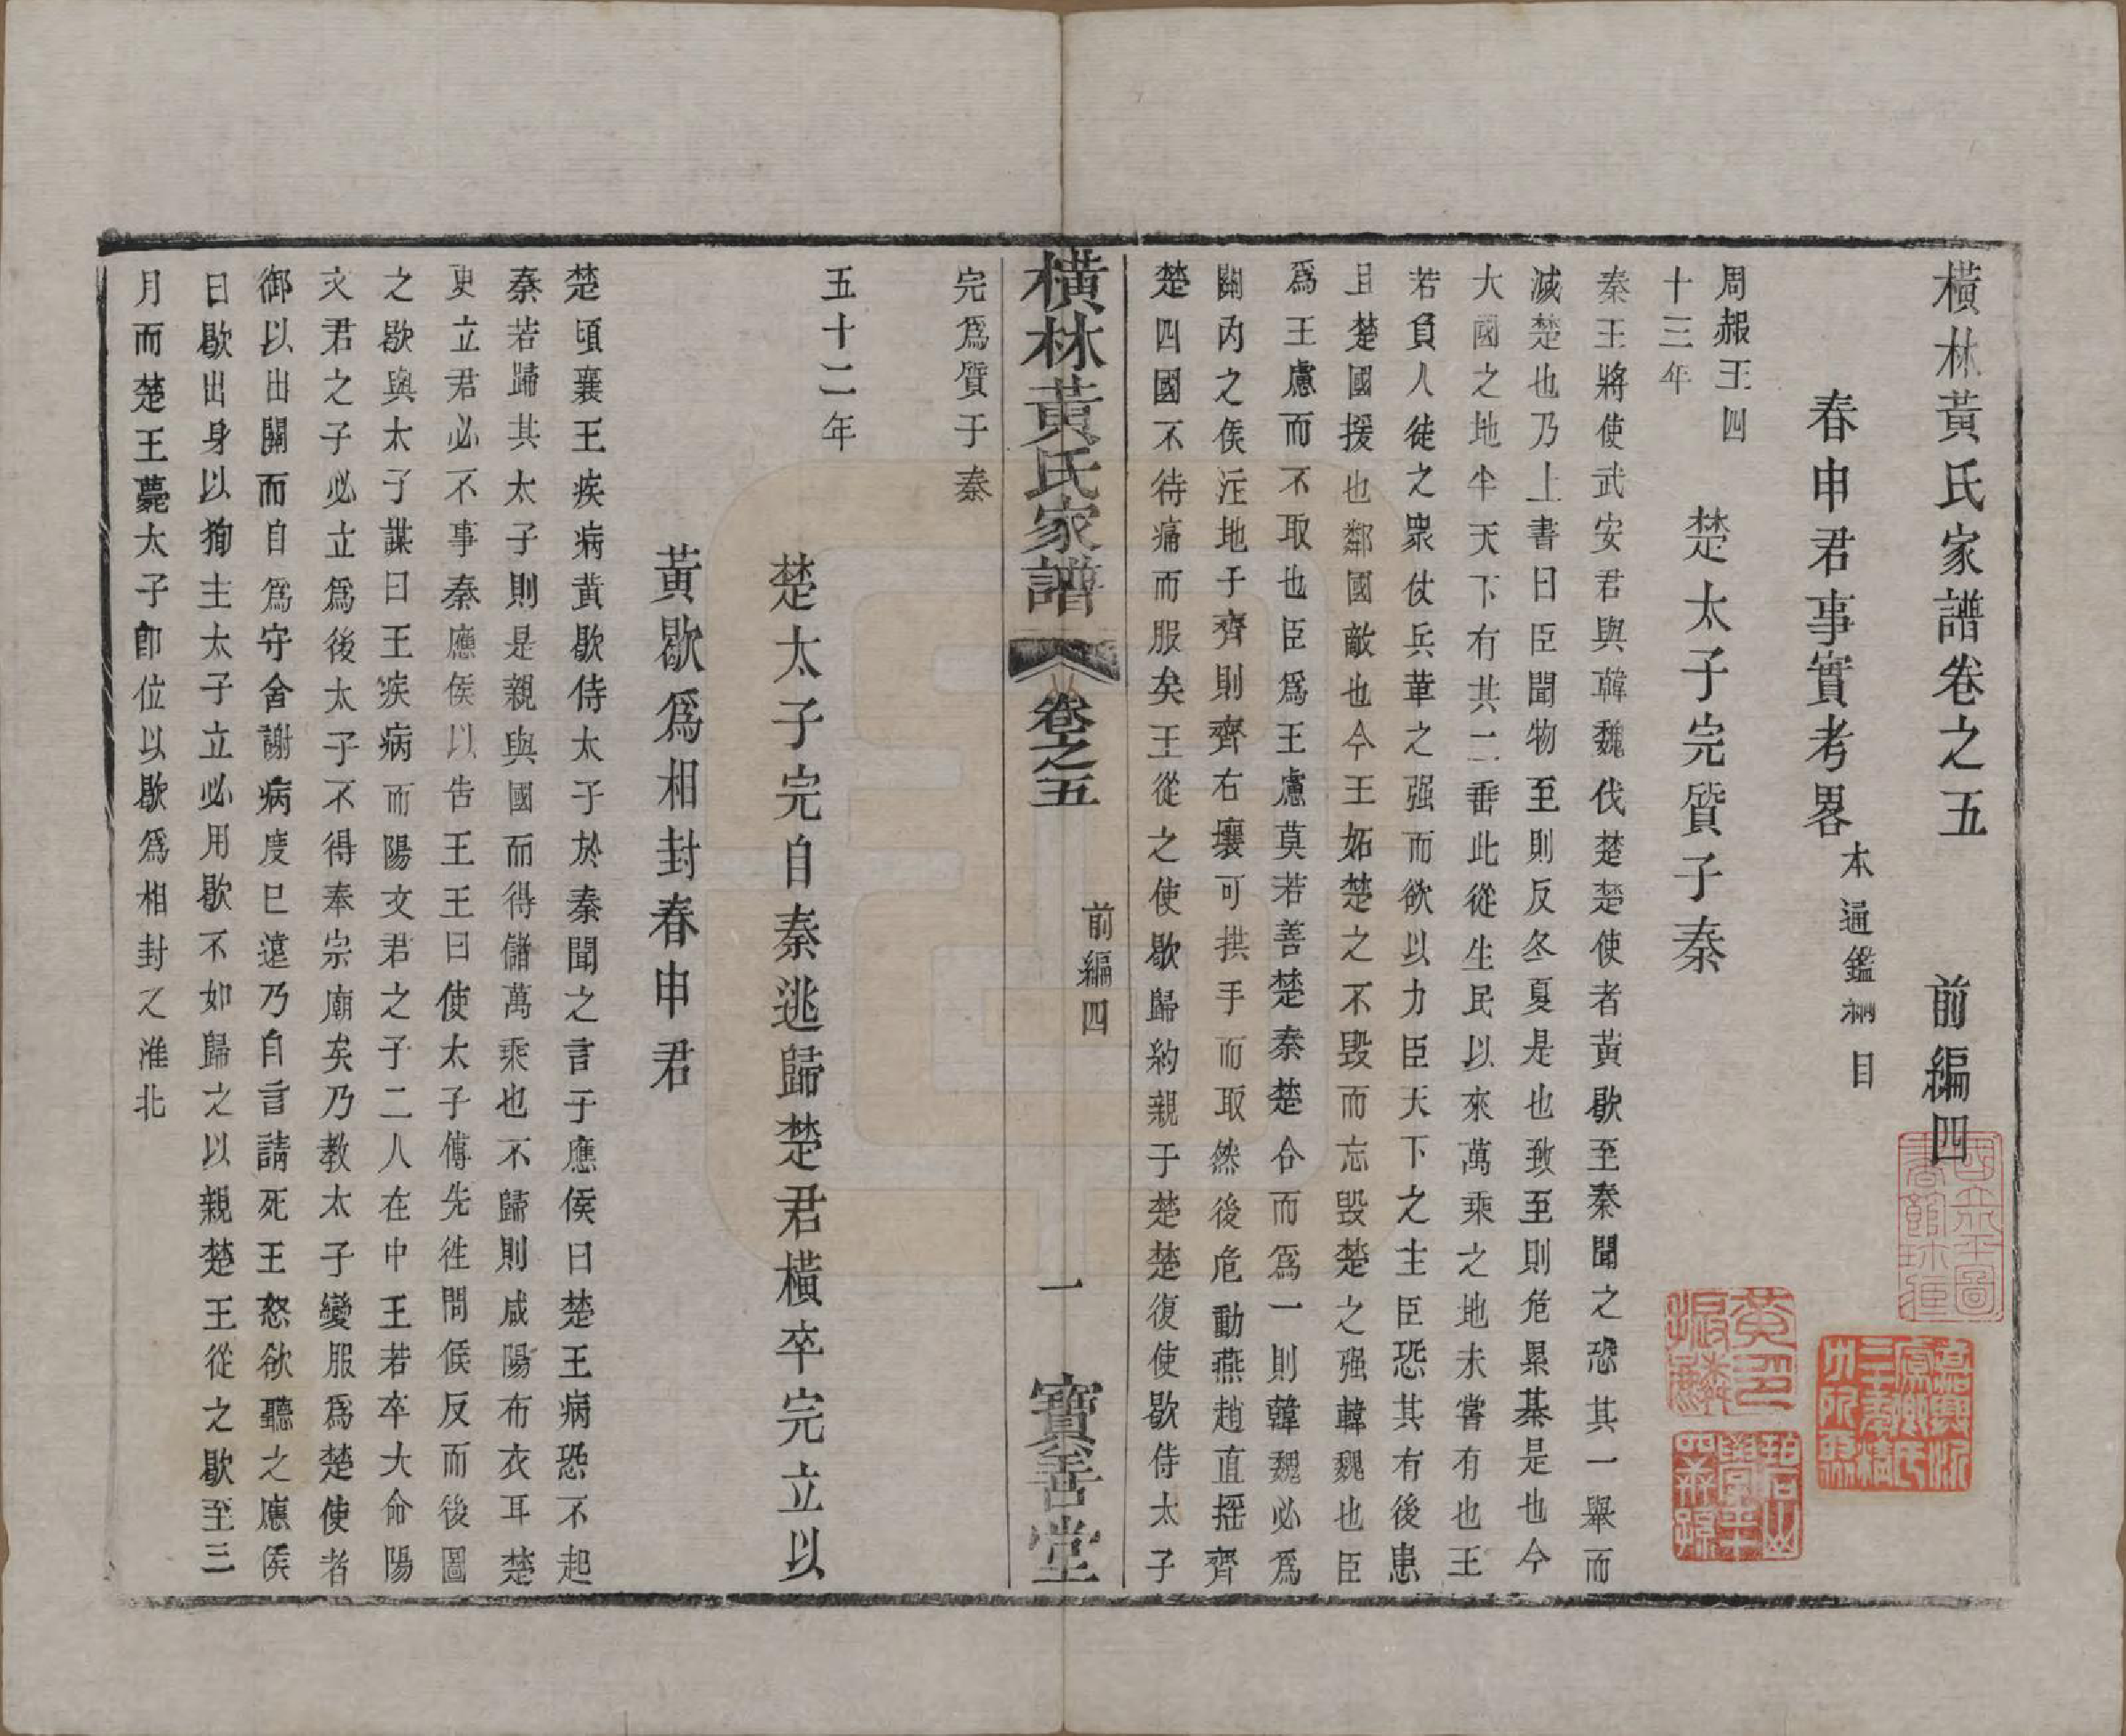 橫林黃氏家譜卷之五　前編四
春申君事實考畧 本通鑑綱目
周赧王四
十三年
楚太子完質于秦
秦王將使武安君與韓魏伐楚楚使者黃歇至秦聞之恐其一舉而
滅楚也乃上書曰臣聞物至則反冬夏是也致至則危累棊是也今
大國之地半天下有其二垂此從生民以來萬乘之地未嘗有也王
若負人徒之衆仗兵革之强而欲以力臣天下之主臣恐其有後患
且楚國援也鄰國敵也今王妬楚之不毀而忘毀楚之强韓魏也臣
爲王慮而不取也臣爲王慮莫若善楚秦楚合而爲一則韓魏必爲
關内之侯注地于齊則齊右壤可拱手而取然後危動燕趙直摇齊
楚四國不待痛而服矣王從之使歇歸約親于楚楚復使歇侍太子
橫林黃氏家譜　卷之五　前編四　一　寶善堂
完爲質于秦
五十二年
楚太子完自秦逃歸楚君橫卒完立以
黃歇爲相封春申君
楚頃襄王疾病黃歇侍太子於秦聞之言于應侯曰楚王病恐不起
秦若歸其太子則是親與國而得儲萬乘也不歸則咸陽布衣耳楚
更立君必不事秦應侯以告王王曰使太子傅先徃問候反而後圖
之歇與太子謀曰王疾病而陽文君之子二人在中王若卒大命陽
文君之子必立爲後太子不得奉宗廟矣乃教太子變服爲楚使者
御以出關而自爲守舍謝病度巳遠乃自言請死王怒欲聽之應侯
曰歇出身以狥主太子立必用歇不如歸之以親楚王從之歇至三
月而楚王薨太子卽位以歇爲相封以淮北
黃印振麟